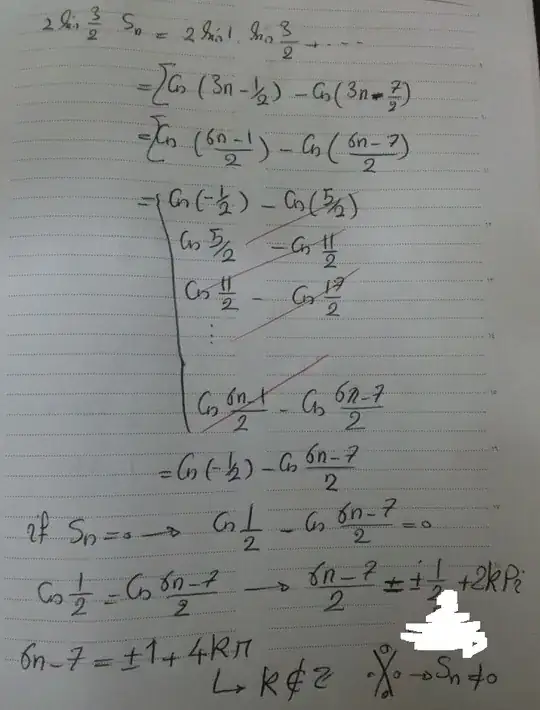 2 sin 3/2 Sn = 2 sin 1 . sin 3/2 + ....
= [Cos (3n - 1/2) - Cos (3n - 7/2)
= [Cos (6n-1/2) - Cos (6n-7/2)
= Cos (-1/2) - Cos (5/2)
Cos 5/2 - Cos 11/2
Cos 11/2 - Cos 17/2
⋮
Cos 6n-1/2 - Cos 6n-7/2
= Cos (-1/2) - Cos 6n-7/2
if Sn = 0 → Cos 1/2 - Cos 6n-7/2 = 0
Cos 1/2 = Cos 6n-7/2 → 6n-7/2 = ± 1/2 + 2kPi
6n-7 = ±1 + 4kπ
↳ k ∉ Z → Sn ≠ 0